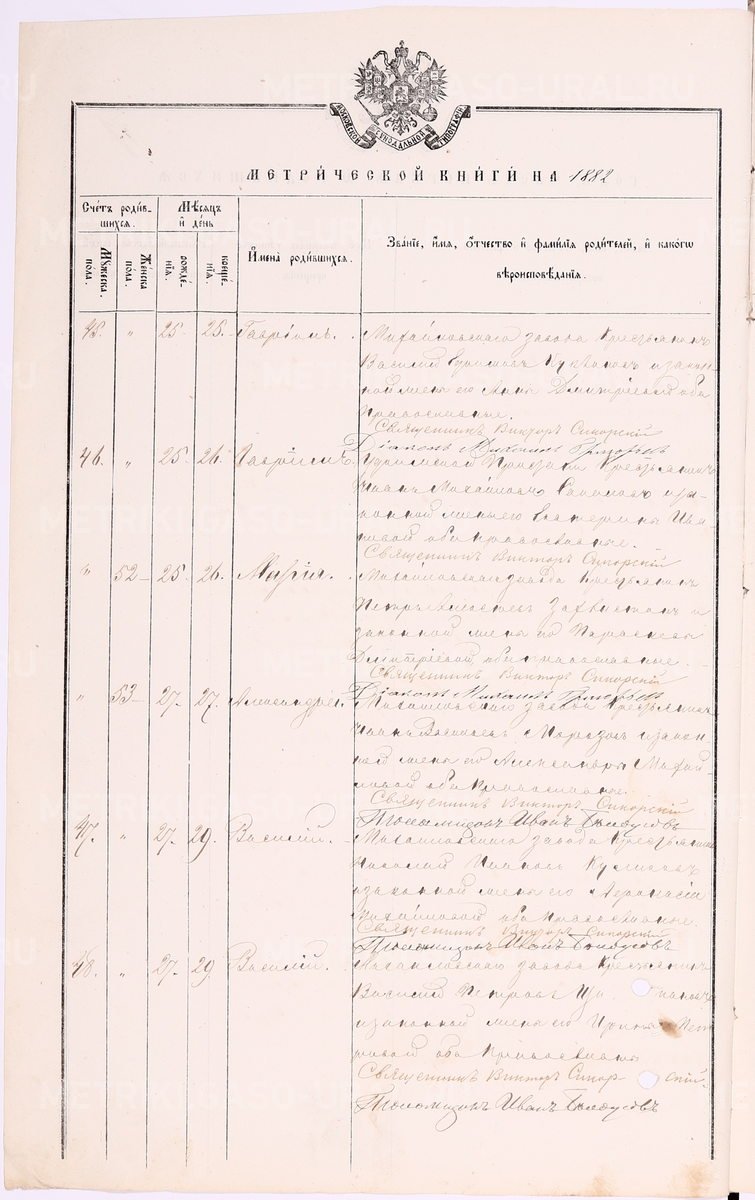 МОСКОВСКОЙ СѴНОДАЛЬНОЙ ТИПОГРАФІИ
МЕТРИ́ЧЕСКОЙ КНИ́ГИ НА 1882
Сче́тъ роди́в-
шихся.
Му́жеска
по́ла.
Же́нска
по́ла.
Мѣ́сяцъ
и де́нь
рожде́-
нїя.
креще́-
нїя.
И҆мена̀ роди́вшихся.
Зва́нїе, и҆́мя, ѻ҆́тчество и҆ фами́лїя роди́телей, и҆ како́гѡ
вѣроисповѣ́данїя.
45. " 25. 25. Гавріилъ. Михайловскаго завода крестьянинъ
Василій и закон-
ной жена его Анна Дмитріевой оба
Православные.
Священникъ Викторъ Сикорскій
Діаконъ Михаилъ Григорьевъ
46. " 25. 26. Гавріилъ. крестьянинъ
Иванъ Михайловъ и за-
конной жены его Екатерина Ива-
новой оба православные.
Священникъ Викторъ Сикорскій
" 52 25 26. Марія. Михайловскаго завода крестьянинъ
Петръ и
законной жена его Параскева
Дмитріевой оба православные.
Священникъ Викторъ Сикорскій
Діаконъ Михаилъ Григорьевъ
" 53 27. 27. Александра. Михайловскаго завода крестьянинъ
Иванъ Васильевъ Морозовъ и закон-
ной жена его Александры Михай-
ловой оба православные.
Священникъ Викторъ Сикорскій
Псаломщикъ Иванъ
47. " 27. 29. Василій. Михайловскаго завода крестьянинъ
Николай Ивановъ
и законной жена его Афанасія
Михайловой оба православные.
Священникъ Викторъ Сикорскій
Псаломщикъ Иванъ
48. " 27. 29 Василій. Михайловскаго завода крестьянинъ
Василій Петровъ
и законной жена его Ирина Пет-
ровой оба православные
Священникъ Викторъ Сикорскій
Псаломщикъ Иванъ